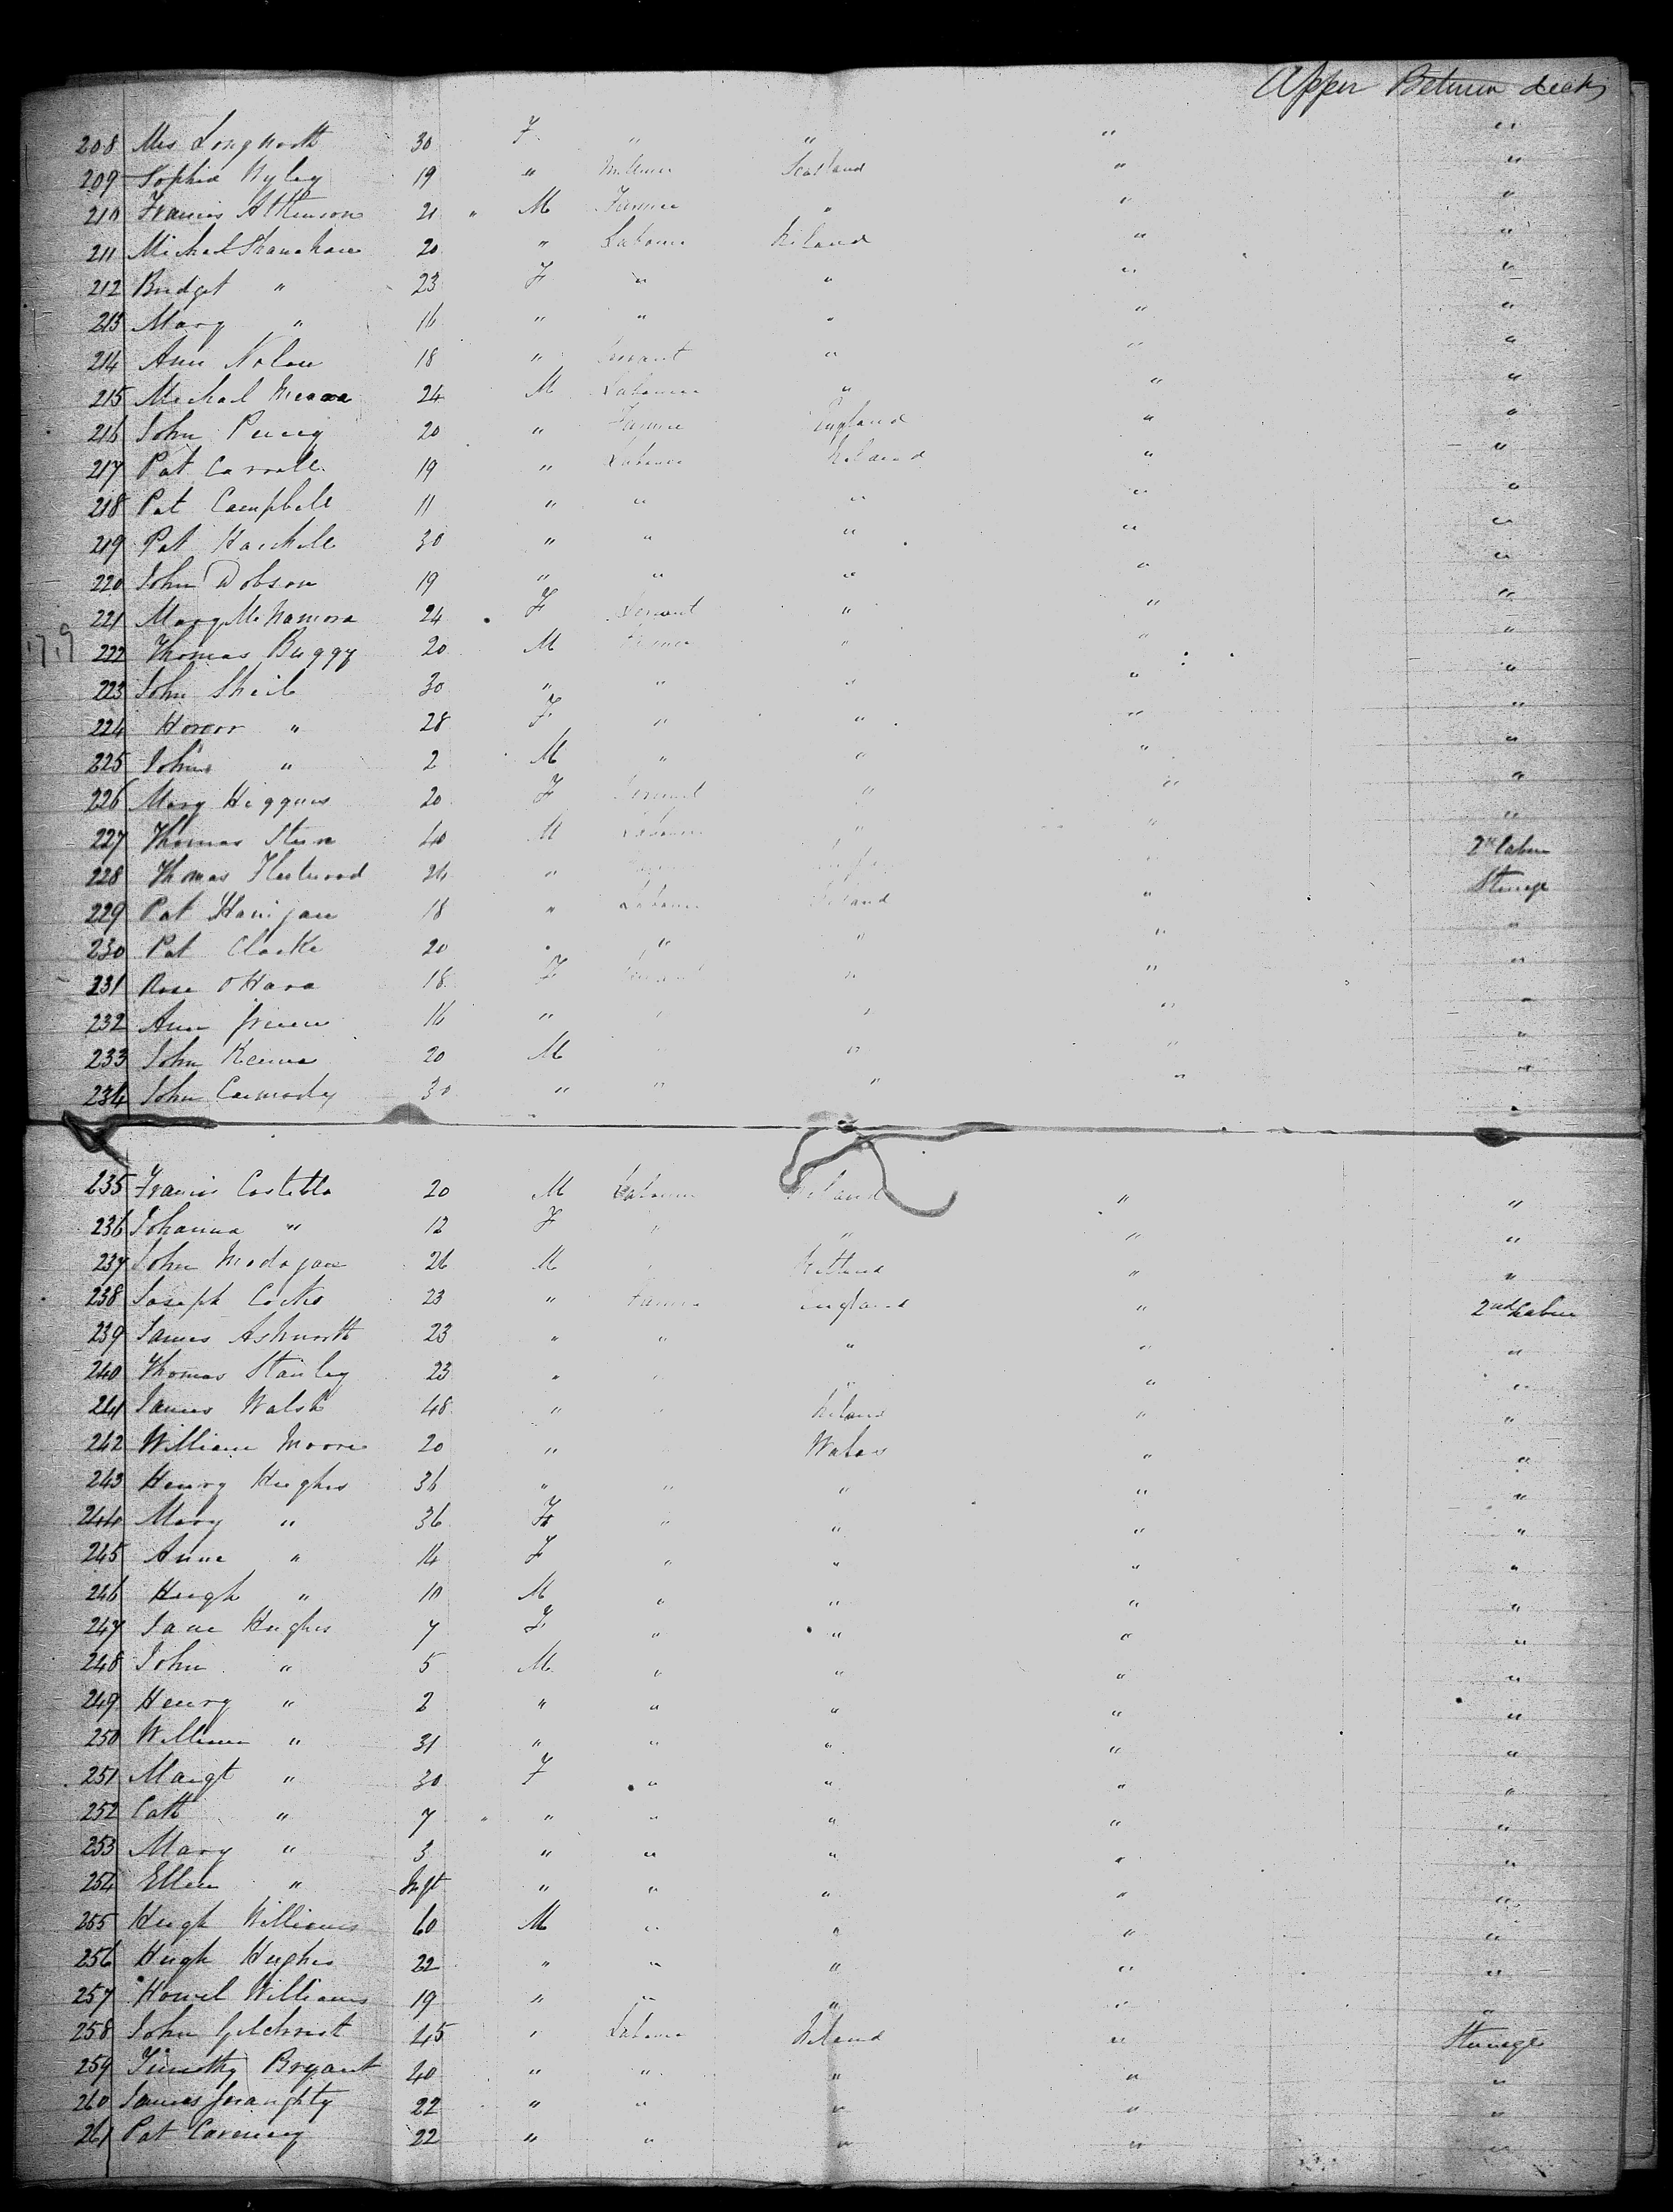 Upper Between decks
208 Mrs Longworth 30 F " " " "
209 Sophia Wyley 19 " Milliner Scotland " "
210 Francis Atkinson 21 " M Farmer " " "
211 Michael Shanahan 20 " Labourer Ireland " "
212 Bridget " 23 F " " " "
213 Mary " 16 " " " " "
214 Ann Nolan 18 " Servant " " "
215 Michael 24 M Labourer " " "
216 John 20 " Farmer England " "
217 Pat Carroll 19 " Labourer Ireland " "
218 Pat Campbell 11 " " " " "
219 Pat 30 " " " " "
220 John Dobson 19 " " " " "
221 Mary McNamora 24 F Servant " " "
222 Thomas Buggy 20 M Farmer " " "
223 John Sheil 30 " " " " "
224 Honor " 28 F " " " "
225 John " 2 M " " " "
226 Mary Higgins 20 F Servant " " "
227 Thomas 40 M Labourer " " "
228 Thomas Fleetwood 26 " " 2nd Cabin
229 Pat 18 " Labourer Ireland " Steerage
230 Pat Clarke 20 " " " " "
231 Rose O Hara 18 F Servant " " "
232 Ann Green 16 " " " " "
233 John 20 M " " " "
234 John Carmody 30 " " " " "
235 Francis Costello 20 M Labourer Ireland " "
236 Johanna " 12 F " " " "
237 John Madogan 26 M " Ireland " "
238 Joseph Cocks 23 " Farmer England " 2nd Cabin
239 James Ashworth 23 " " " " "
240 Thomas Stanley 23 " " " " "
241 James Walsh 48 " " Ireland " "
242 William Moore 20 " Wales " "
243 Henry Hughes 36 " " " " "
244 Mary " 36 F " " " "
245 Anne " 14 F " " " "
246 Hugh " 10 M " " " "
247 Jane Hughes 7 F " " " "
248 John " 5 M " " " "
249 Henry " 2 " " " " "
250 William " 31 " " " " "
251 Margt " 30 F " " " "
252 Cath " 7 " " " " "
253 Mary " 3 " " " " "
254 Ellen " Inft " " " " "
255 Hugh Williams 60 M " " " "
256 Hugh Hughes 22 " " " " "
257 Howel Williams 19 " " " " "
258 John Gilchrist 45 " Labourer Ireland " Steerage
259 Timothy Bryant 40 " " " " "
260 James Geraughty 22 " " " " "
261 Pat 22 " " " " "